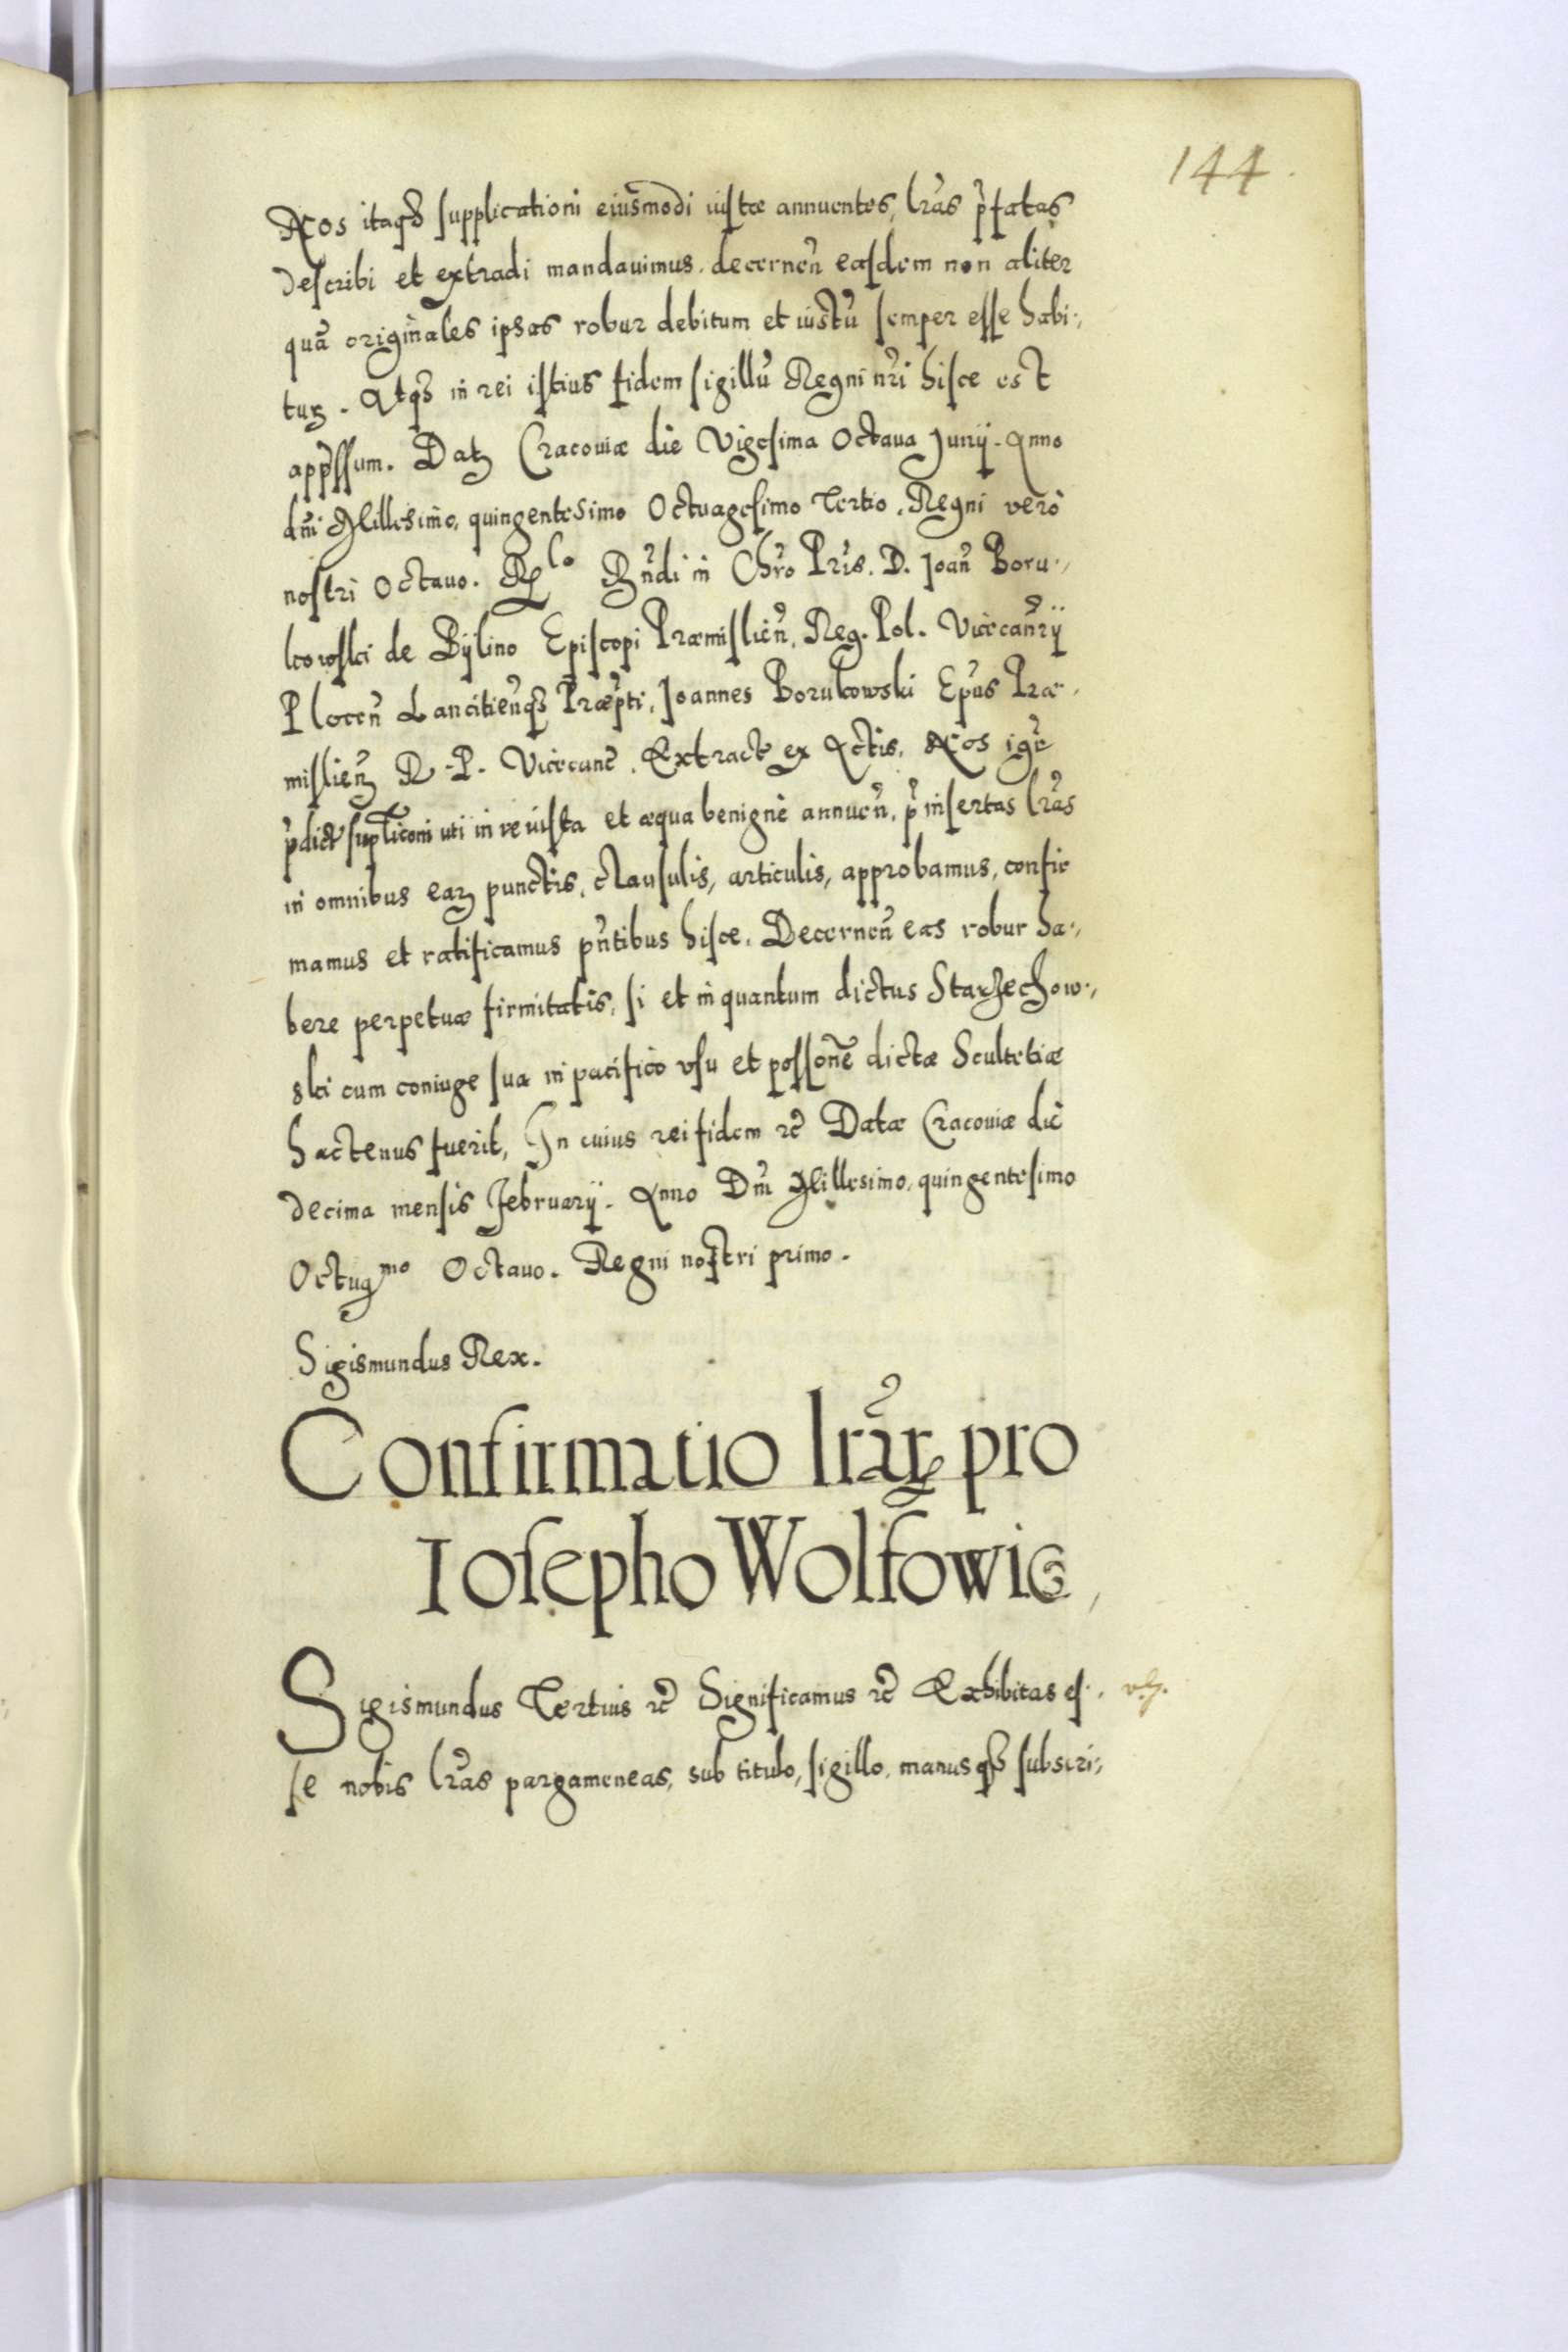 144.
Nos itaqȝ supplicationi eiusmodi iustæ annuentes, lr̃as p̃fatas
describi et extradi mandauimus. decernen̄ easdem non aliter
quā originales ipsas robur debitum et iustū semper esse habi-
turꝫ. Atqȝ in rei istius fidem sigillū Regni nr̃i hisce est
app̃ssum. Datꝫ Cracouiæ die Vigesima Octaua Junij. Anno
dn̄i Millesimo, quingentesimo Octuagesimo Tertio. Regni verò
nostri Octauo. Rlo Rn̄di in Chr̃o Pr̃is. D. Joan̄ Boru-
kowski de Bÿlino Episcopi Præmislien̄, Reg. Pol. Vicecan̄rÿ
Plocen̄ Lancitien̄qȝ Præp̃ti, Joannes Borukowski Ep̃us Præ-
mislienꝫ R. P. Vicecanc̃. Extract ex Actis. Nos igr̃
p̃dict supliconi uti in re iusta et æqua benignè annuen̄, p̃insertas lr̃as
in omnibus earꝫ punctis, clausulis, articulis, approbamus, confir
mamus et ratificamus pn̄tibus hisce. Decernen̄ eas robur ha-
bere perpetuæ firmitatis, si et in quantum dictus Starzechow-
ski cum coniuge sua in pacifico vsu et possoñe dictæ Scultetiæ
hactenus fuerit, In cuius rei fidem rc̃ Datæ Cracouiæ die
decima mensis Februarÿ. Anno Dn̄i Millesimo, quingentesimo
Octuagmo Octauo. Regni nostri primo.
Sigismundus Rex.
Confirmatio lr̃arꝫ pro
Iosepho Wolfowic,
Sigismundus Tertius rc̃ Significamus rc̃ Exhibitas es-
se nobis lr̃as pargameneas, sub titulo, sigillo, manusqȝ subscri-